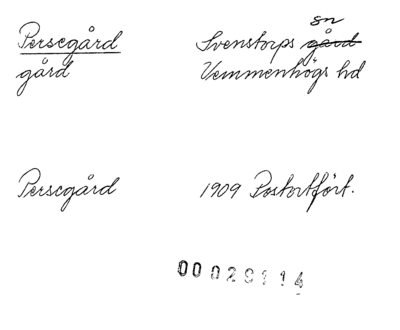 Persegård Svenstorps sn gård
gård Vemmenhögs hd
Persegård 1909 Postortfört.
00 020114